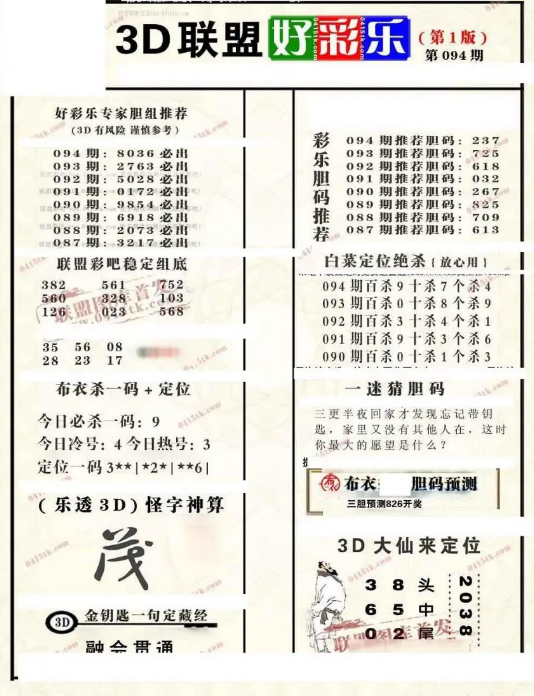 3D联盟 好彩乐 (第1版)
第094期
好彩乐专家胆组推荐
(3D有风险 谨慎参考)
094期: 8036必出
093期: 2763必出
092期: 5028必出
091期: 0172必出
090期: 9854必出
089期: 6918必出
088期: 2073必出
087期: 3217必出
联盟彩吧稳定组底
382 561 752
560 328 103
126 023 568
35 56 08
28 23 17
布衣杀一码+定位
今日必杀一码: 9
今日冷号: 4 今日热号: 3
定位一码 3**|*2*|**6|
(乐透3D)怪字神算
茂
3D 金钥匙一句定藏经
融会贯通
彩乐胆码推荐
094期推荐胆码: 237
093期推荐胆码: 725
092期推荐胆码: 618
091期推荐胆码: 032
090期推荐胆码: 267
089期推荐胆码: 825
088期推荐胆码: 709
087期推荐胆码: 613
白菜定位绝杀{放心用}
094期百杀9十杀7个杀4
093期百杀0十杀8个杀9
092期百杀3十杀4个杀1
091期百杀9十杀3个杀6
090期百杀0十杀1个杀3
一迷猜胆码
三更半夜回家才发现忘记带钥
匙, 家里又没有其他人在, 这时
你最大的愿望是什么?
布衣 胆码预测
三胆预测826开奖
3D大仙来定位
3 8 头
6 5 中
0 2 尾
2038
联盟图库首发
0415tk.com